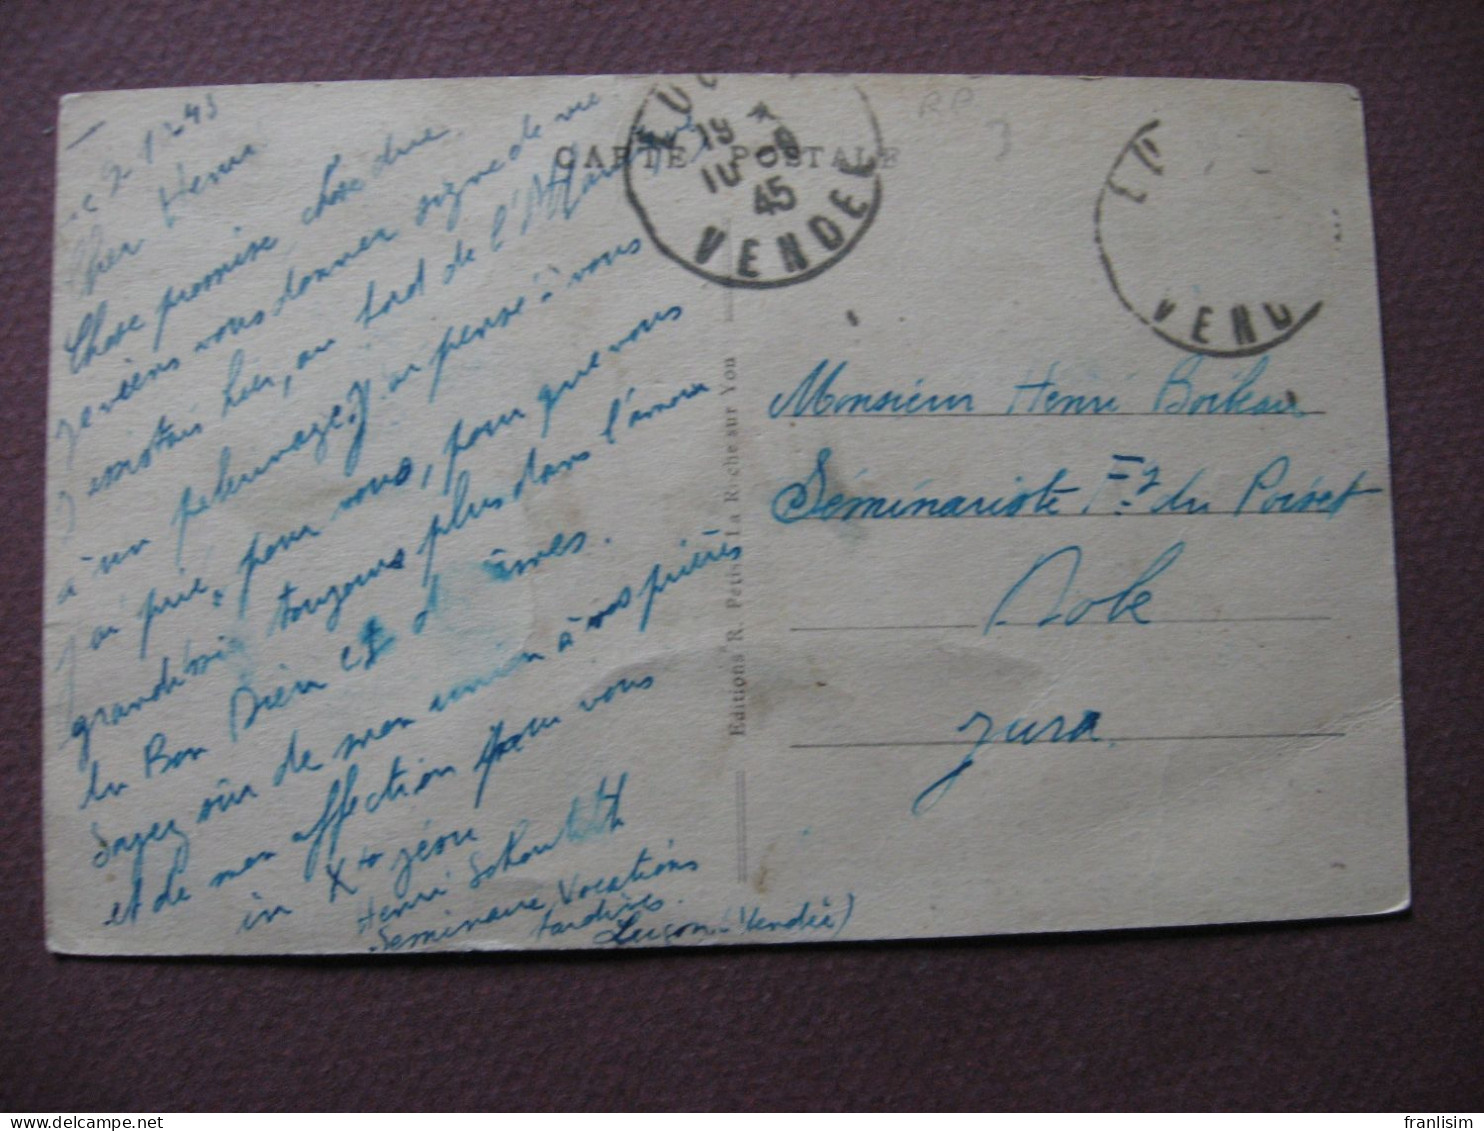 Cher Henri
Chose promise chose due
je viens vous donner signe de vie
J'assistais hier, au bord de l'
à un pelerinage. J'ai pensé à vous
J'ai prié, pour vous, pour que vous
grandissiez toujours plus dans l'amour
du Bon Dieu et d âmes.
Soyez sûr de mon union à vos prières
et de mon affection pour vous
in Xto jésu
Henri
Seminaire Vocations
tardives.
Luçon (Vendée)
CARTE POSTALE
19
10
45
VENDEE
VEND
Editions R. Petit La Roche sur Yon
Monsieur Henri Boileau
Séminariste du Poiset
Dole
Jura
franlisim